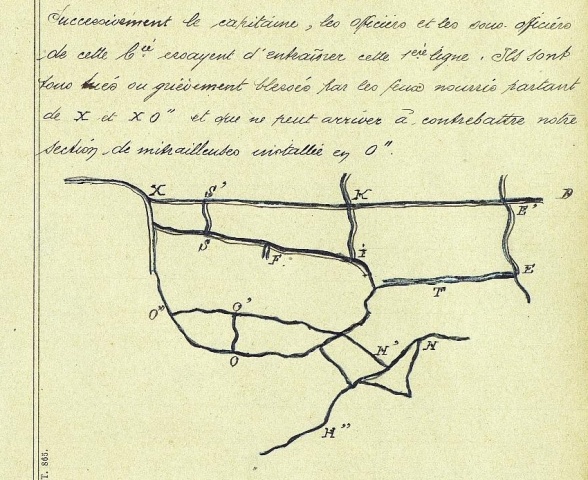 Successivement le capitaine, les officiers et les sous-officiers
de cette Cie essayent d'entraîner cette 1ère ligne. Ils sont
tous tués ou grièvement blessés par les feux nourris partant
de X et XO" et que ne peut arriver à contrebattre notre
section de mitrailleuses installée en O".
X S' K E' D
S F i E
T
O" O'
O
N' N
N"
T. 865.